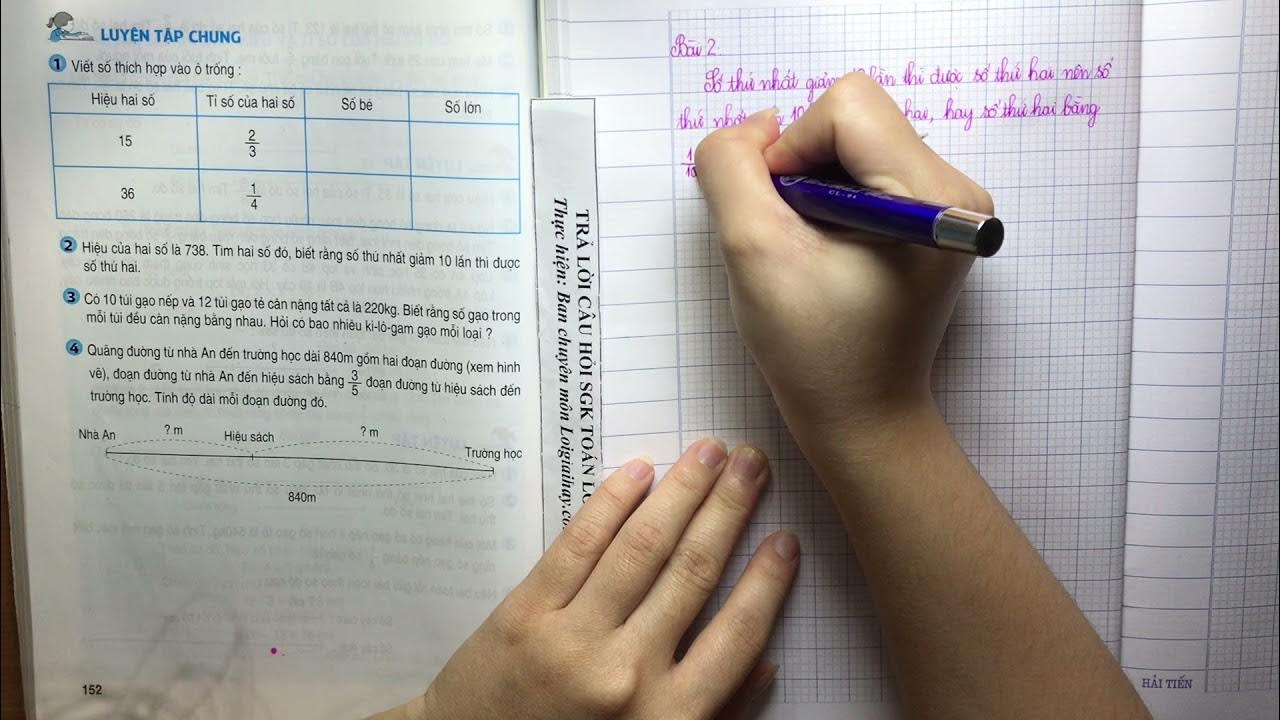 LUYỆN TẬP CHUNG
1 Viết số thích hợp vào ô trống :
Hiệu hai số Tỉ số của hai số Số bé Số lớn
15 2/3
36 1/4
2 Hiệu của hai số là 738. Tìm hai số đó, biết rằng số thứ nhất giảm 10 lần thì được
số thứ hai.
3 Có 10 túi gạo nếp và 12 túi gạo tẻ cân nặng tất cả là 220kg. Biết rằng số gạo trong
mỗi túi đều cân nặng bằng nhau. Hỏi có bao nhiêu ki-lô-gam gạo mỗi loại ?
4 Quãng đường từ nhà An đến trường học dài 840m gồm hai đoạn đường (xem hình
vẽ), đoạn đường từ nhà An đến hiệu sách bằng 3/5 đoạn đường từ hiệu sách đến
trường học. Tính độ dài mỗi đoạn đường đó.
? m ? m
Nhà An Hiệu sách Trường học
840m
152
TRẢ LỜI CÂU HỎI SGK TOÁN
Thực hiện: Ban chuyên môn Loigiaihay.co
Bài 2
Số thứ nhất giảm lần thì được số thứ hai nên số
thứ nhất 10 hai, hay số thứ hai bằng
1/10
CL-01
HẢI TIẾN